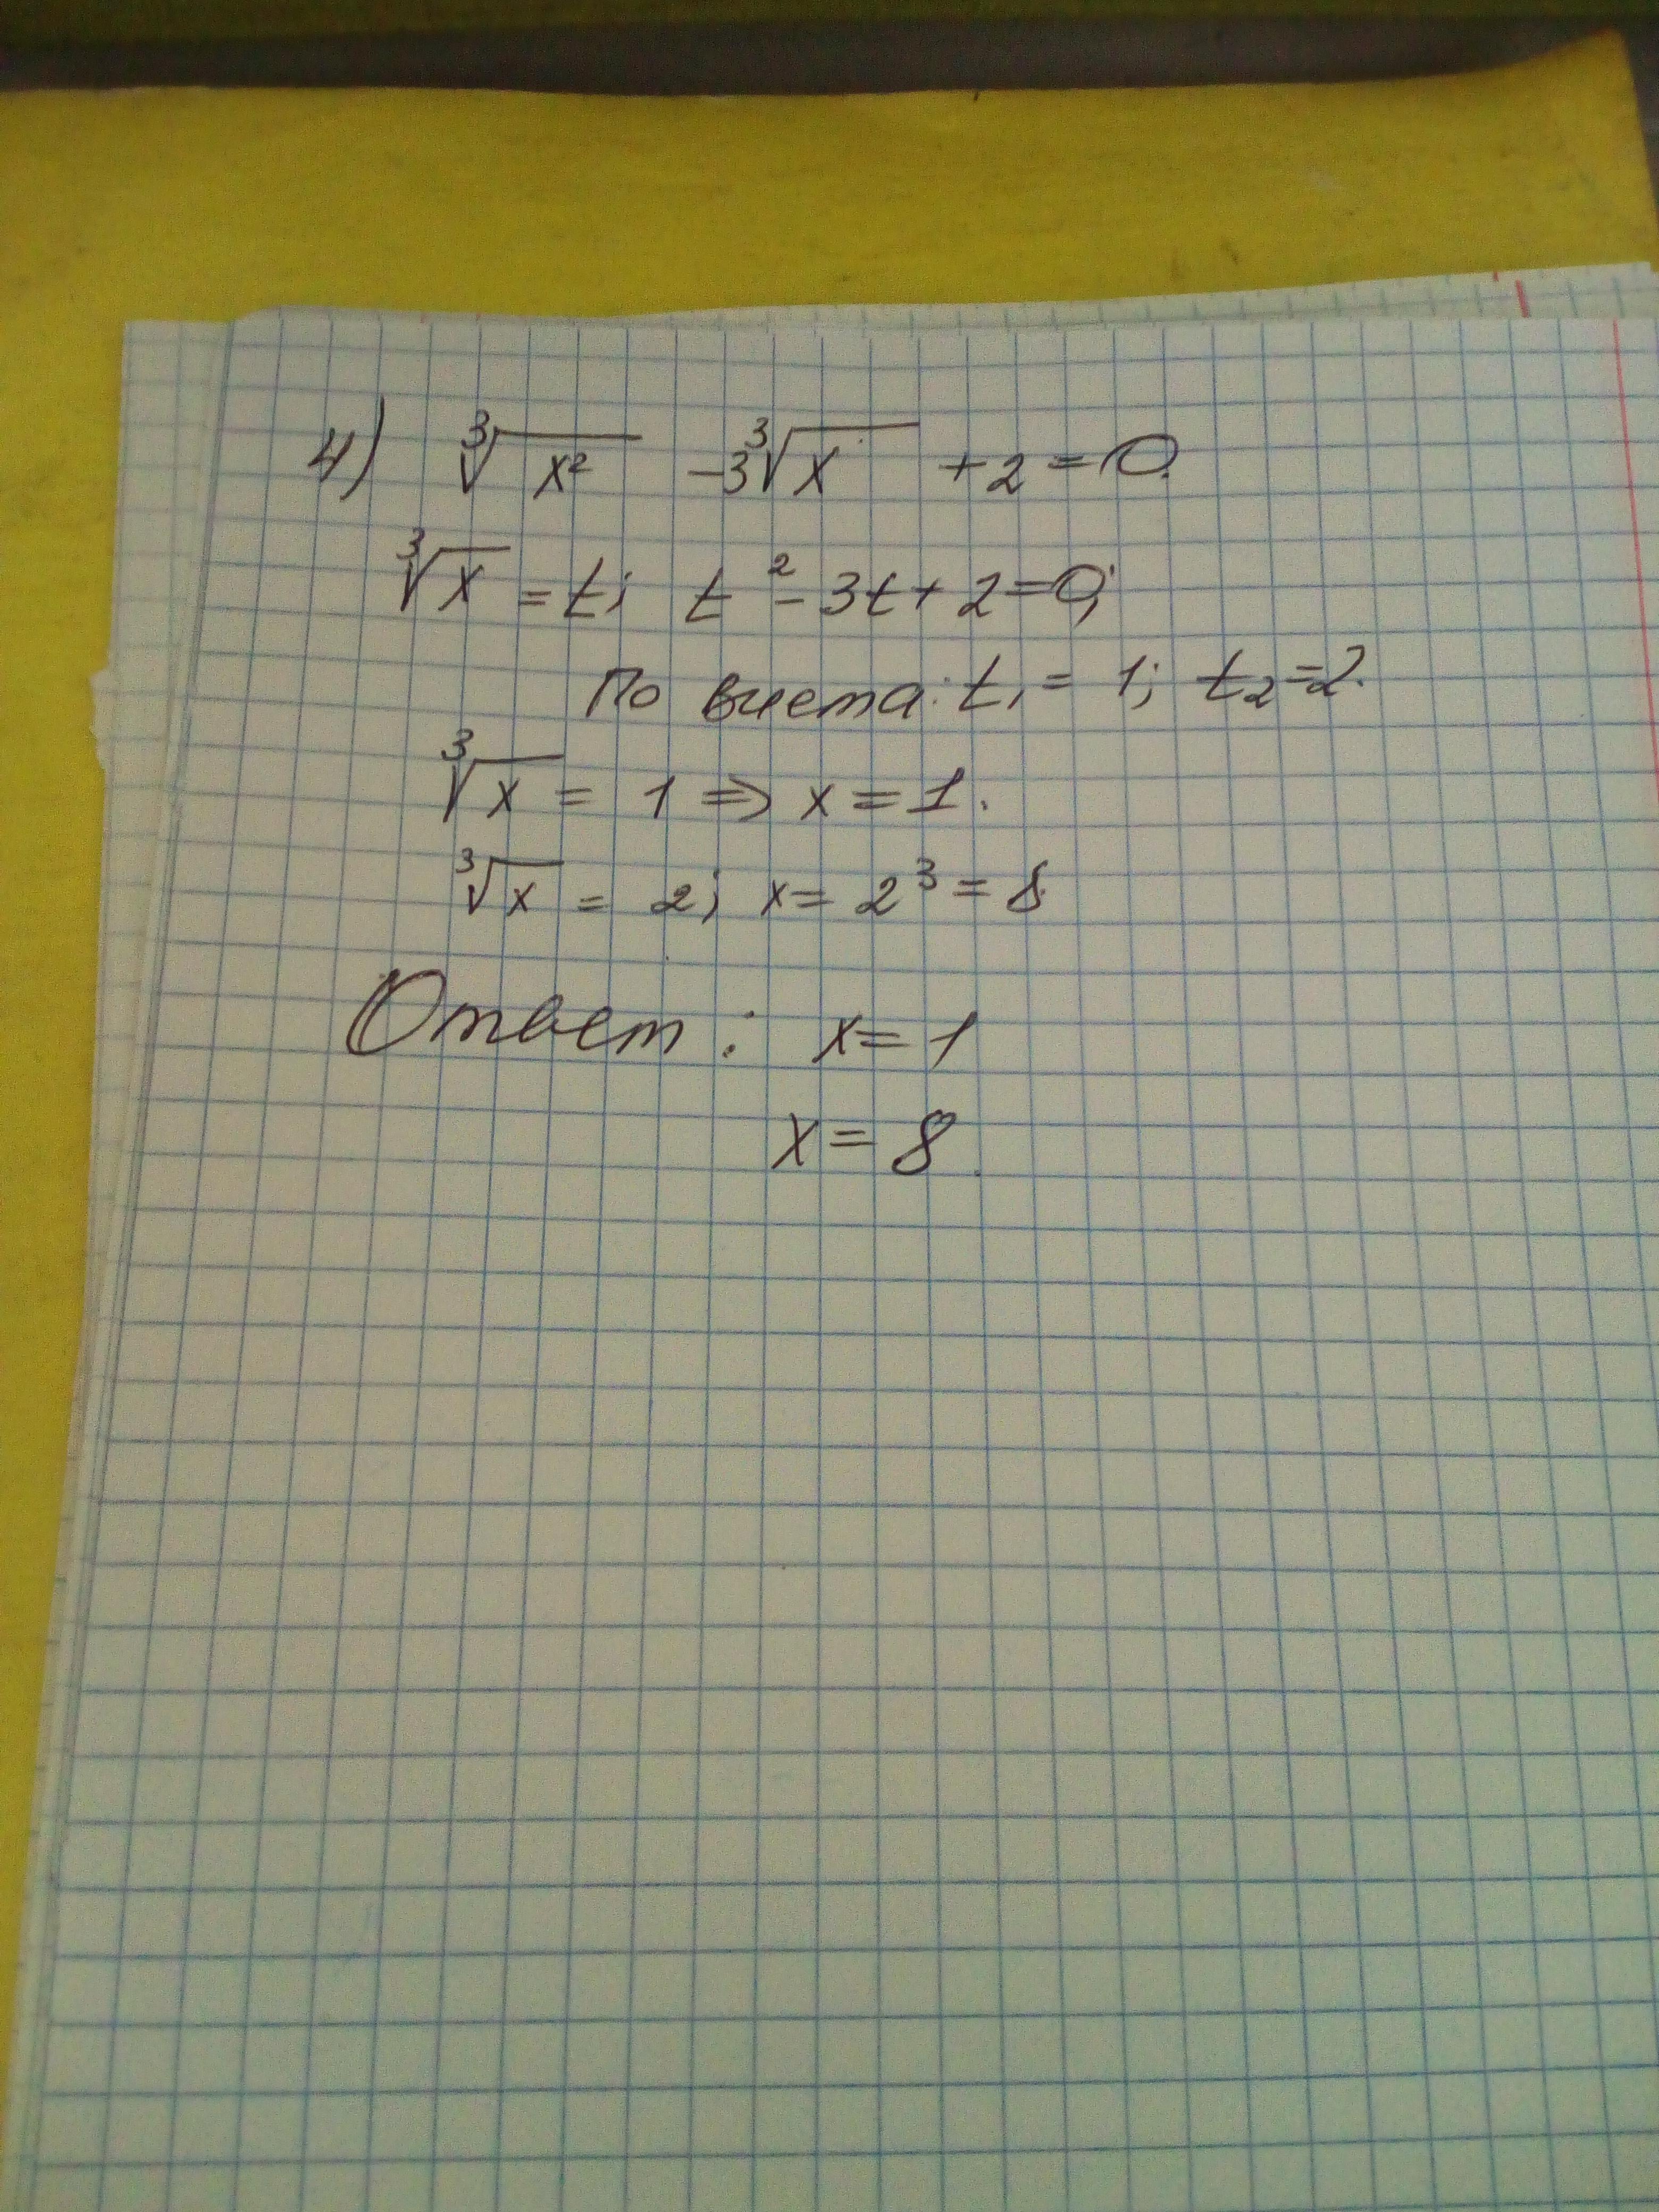 4) ∛x² - 3∛x + 2 = 0.
∛x = t; t² - 3t + 2 = 0;
По виета: t₁ = 1; t₂ = 2.
∛x = 1 ⇒ x = 1.
∛x = 2; x = 2³ = 8
Ответ: x = 1
x = 8.